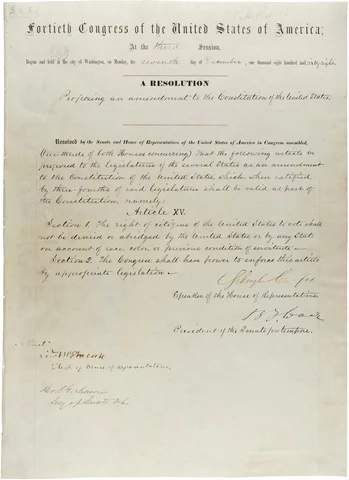 Fortieth Congress of the United States of America;
At the third Session,
Begun and held at the city of Washington, on Monday, the seventh day of December, one thousand eight hundred and sixty-eight
A RESOLUTION
Proposing an amendment to the Constitution of the United States.
Resolved by the Senate and House of Representatives of the United States of America in Congress assembled,
(two-thirds of both Houses concurring) That the following article be
proposed to the legislatures of the several States as an amendment
to the Constitution of the United States, which, when ratified
by three-fourths of said legislatures shall be valid as part of
the Constitution, namely:
Article XV.
Section 1. The right of citizens of the United States to vote shall
not be denied or abridged by the United States or by any State
on account of race, color, or previous condition of servitude—
Section 2. The Congress shall have power to enforce this article
by appropriate legislation—
Speaker of the House of Representatives.
B F Wade
President of the Senate pro tempore.
Attest:
Clerk of House of Representatives
Geo. C. Gorham
Secy of Senate U.S.